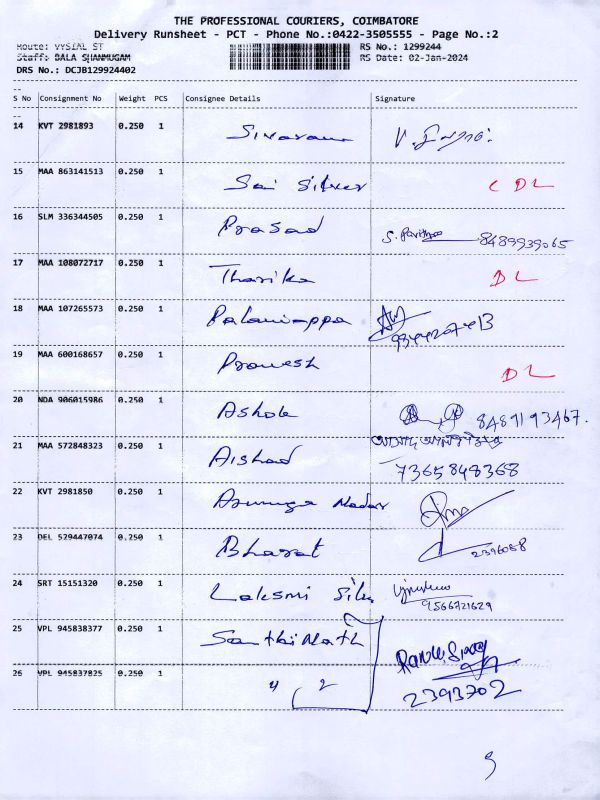 THE PROFESSIONAL COURIERS, COIMBATORE
Delivery Runsheet - PCT - Phone No.:0422-3505555 - Page No.:2
Route: VYSIAL ST RS No.: 1299244
Staff: BALA SHANMUGAM RS Date: 02-Jan-2024
DRS No.: DCJB129924402
S No Consignment No Weight PCS Consignee Details Signature
14 KVT 2981893 0.250 1 Sivaram
15 MAA 863141513 0.250 1 Sai Silver C DL
16 SLM 336344505 0.250 1 Prasad 8489939065
17 MAA 108072717 0.250 1 Tharika DL
18 MAA 107265573 0.250 1 Palaniappa
19 MAA 600168657 0.250 1 Pranesh DL
20 NDA 906015986 0.250 1 Ashok 8489193467.
21 MAA 572848323 0.250 1 Aishad
7365848368
22 KVT 2981850 0.250 1 Arumuga Nadar
23 DEL 529447074 0.250 1 Bharat 2396088
24 SRT 15151320 0.250 1 Laksmi Silk
9566721629
25 VPL 945838377 0.250 1 Santhi Nath
26 VPL 945837825 0.250 1 " 2 2393702
9